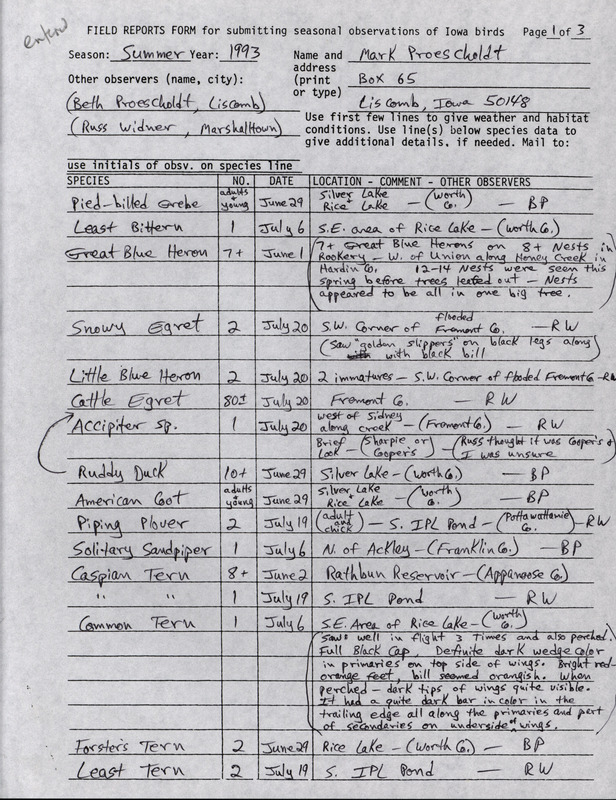 entered
FIELD REPORTS FORM for submitting seasonal observations of Iowa birds Page 1 of 3
Season: Summer Year: 1993
Name and address (print or type) Mark Proescholdt
Box 65
Liscomb, Iowa 50148
Other observers (name, city):
(Beth Proescholdt, Liscomb)
(Russ Widner, Marshalltown)
Use first few lines to give weather and habitat
conditions. Use line(s) below species data to
give additional details, if needed. Mail to:
use initials of obsv. on species line
SPECIES NO. DATE LOCATION - COMMENT - OTHER OBSERVERS
Pied-billed Grebe adults + young June 29 Silver Lake + Rice Lake — (Worth Co.) — BP
Least Bittern 1 July 6 S.E. area of Rice Lake — (Worth Co.)
Great Blue Heron 7+ June 1 (7+ Great Blue Herons on 8+ Nests in
Rookery — W. of Union along Honey Creek in
Hardin Co. 12-14 Nests were seen this
spring before trees leafed out — Nests
appeared to be all in one big tree.)
Snowy Egret 2 July 20 S.W. Corner of flooded Fremont Co. — RW
(Saw "golden slippers" on black legs along
with black bill)
Little Blue Heron 2 July 20 2 immatures — S.W. Corner of flooded Fremont Co - RW
Cattle Egret 80± July 20 Fremont Co. — RW
Accipiter sp. 1 July 20 west of Sidney along creek — (Fremont Co.) — RW
Brief Look — (Sharpie or Cooper's) — (Russ thought it was Cooper's I was unsure)
Ruddy Duck 10+ June 29 Silver Lake — (Worth Co.) — BP
American Coot adults + young June 29 Silver Lake + Rice Lake — (Worth Co.) — BP
Piping Plover 2 July 19 (adult and chick) — S. IPL Pond — (Pottawattamie Co.) — RW
Solitary Sandpiper 1 July 6 N. of Ackley — (Franklin Co.) — BP
Caspian Tern 8+ June 2 Rathbun Reservoir — (Appanoose Co.)
" " 1 July 19 S. IPL Pond — RW
Common Tern 1 July 6 S.E. Area of Rice Lake — (Worth Co.)
(Saw well in flight 3 times and also perched.
Full Black Cap, Definite dark wedge color
in primaries on top side of wings. Bright red-
orange feet, bill seemed orangish. When
perched — dark tips of wings quite visible.
It had a quite dark bar in color in the
trailing edge all along the primaries and part
of secondaries on underside of wings.)
Forster's Tern 2 June 29 Rice Lake — (Worth Co.) — BP
Least Tern 2 July 19 S. IPL Pond — RW